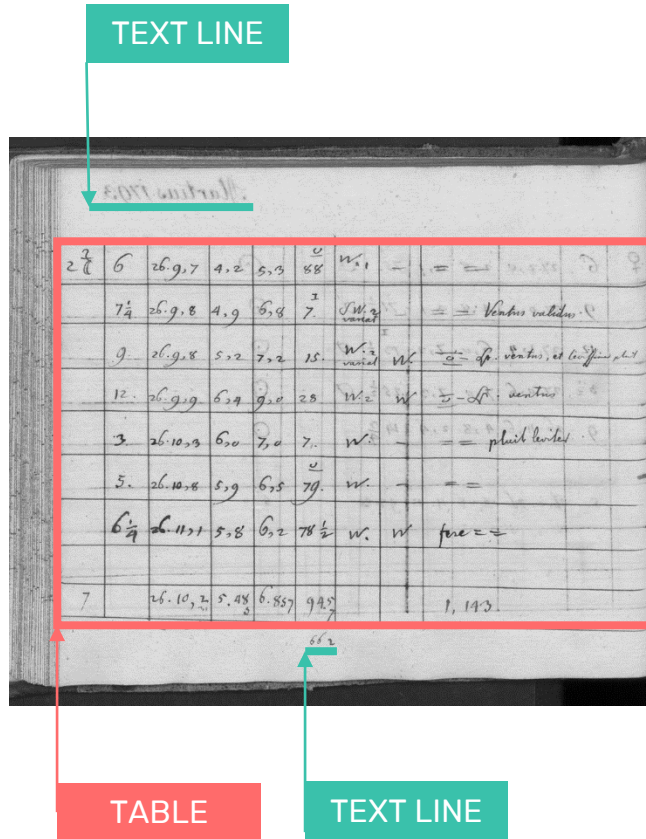 TEXT LINE
Martius 1793.
6 26.9,7 4,2 5,3 88 W.1 = =
7 1/4 26.9,8 4,9 6,8 7. SW.2 variat = = Ventus validus.
9. 26.9,8 5,2 7,2 15. W.2 variat W. ventus, et pluit
12. 26.9,9 6,4 9,0 28 W.2 W ventus
3. 26.10,3 6,0 7,0 7. W. - = = pluit leviter.
5. 26.10,8 5,9 6,5 79. W. - = =
6 1/4 26.11,1 5,8 6,2 78 1/2 W. W fere = =
7 26.10,2 5.48 6.857 94.5 1,143.
66 2
TABLE
TEXT LINE